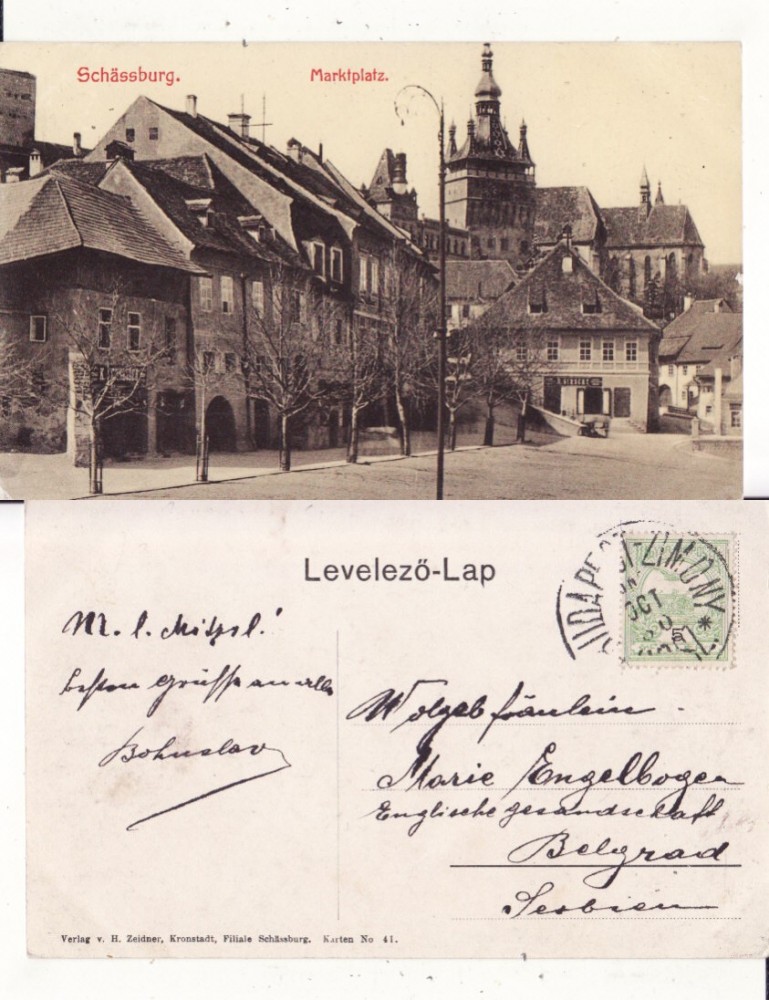 Schässburg.
Marktplatz.
Levelező-Lap
BUDAPEST-ZIMONY
OCT
M. l. Mitzel!
besten Grüsse an alle
Bohuslav
Wolgeb fräulein
Marie Engelbogen
Englische gesandschaft
Belgrad
Serbien
Verlag v. H. Zeidner, Kronstadt, Filiale Schässburg. Karten No 41.